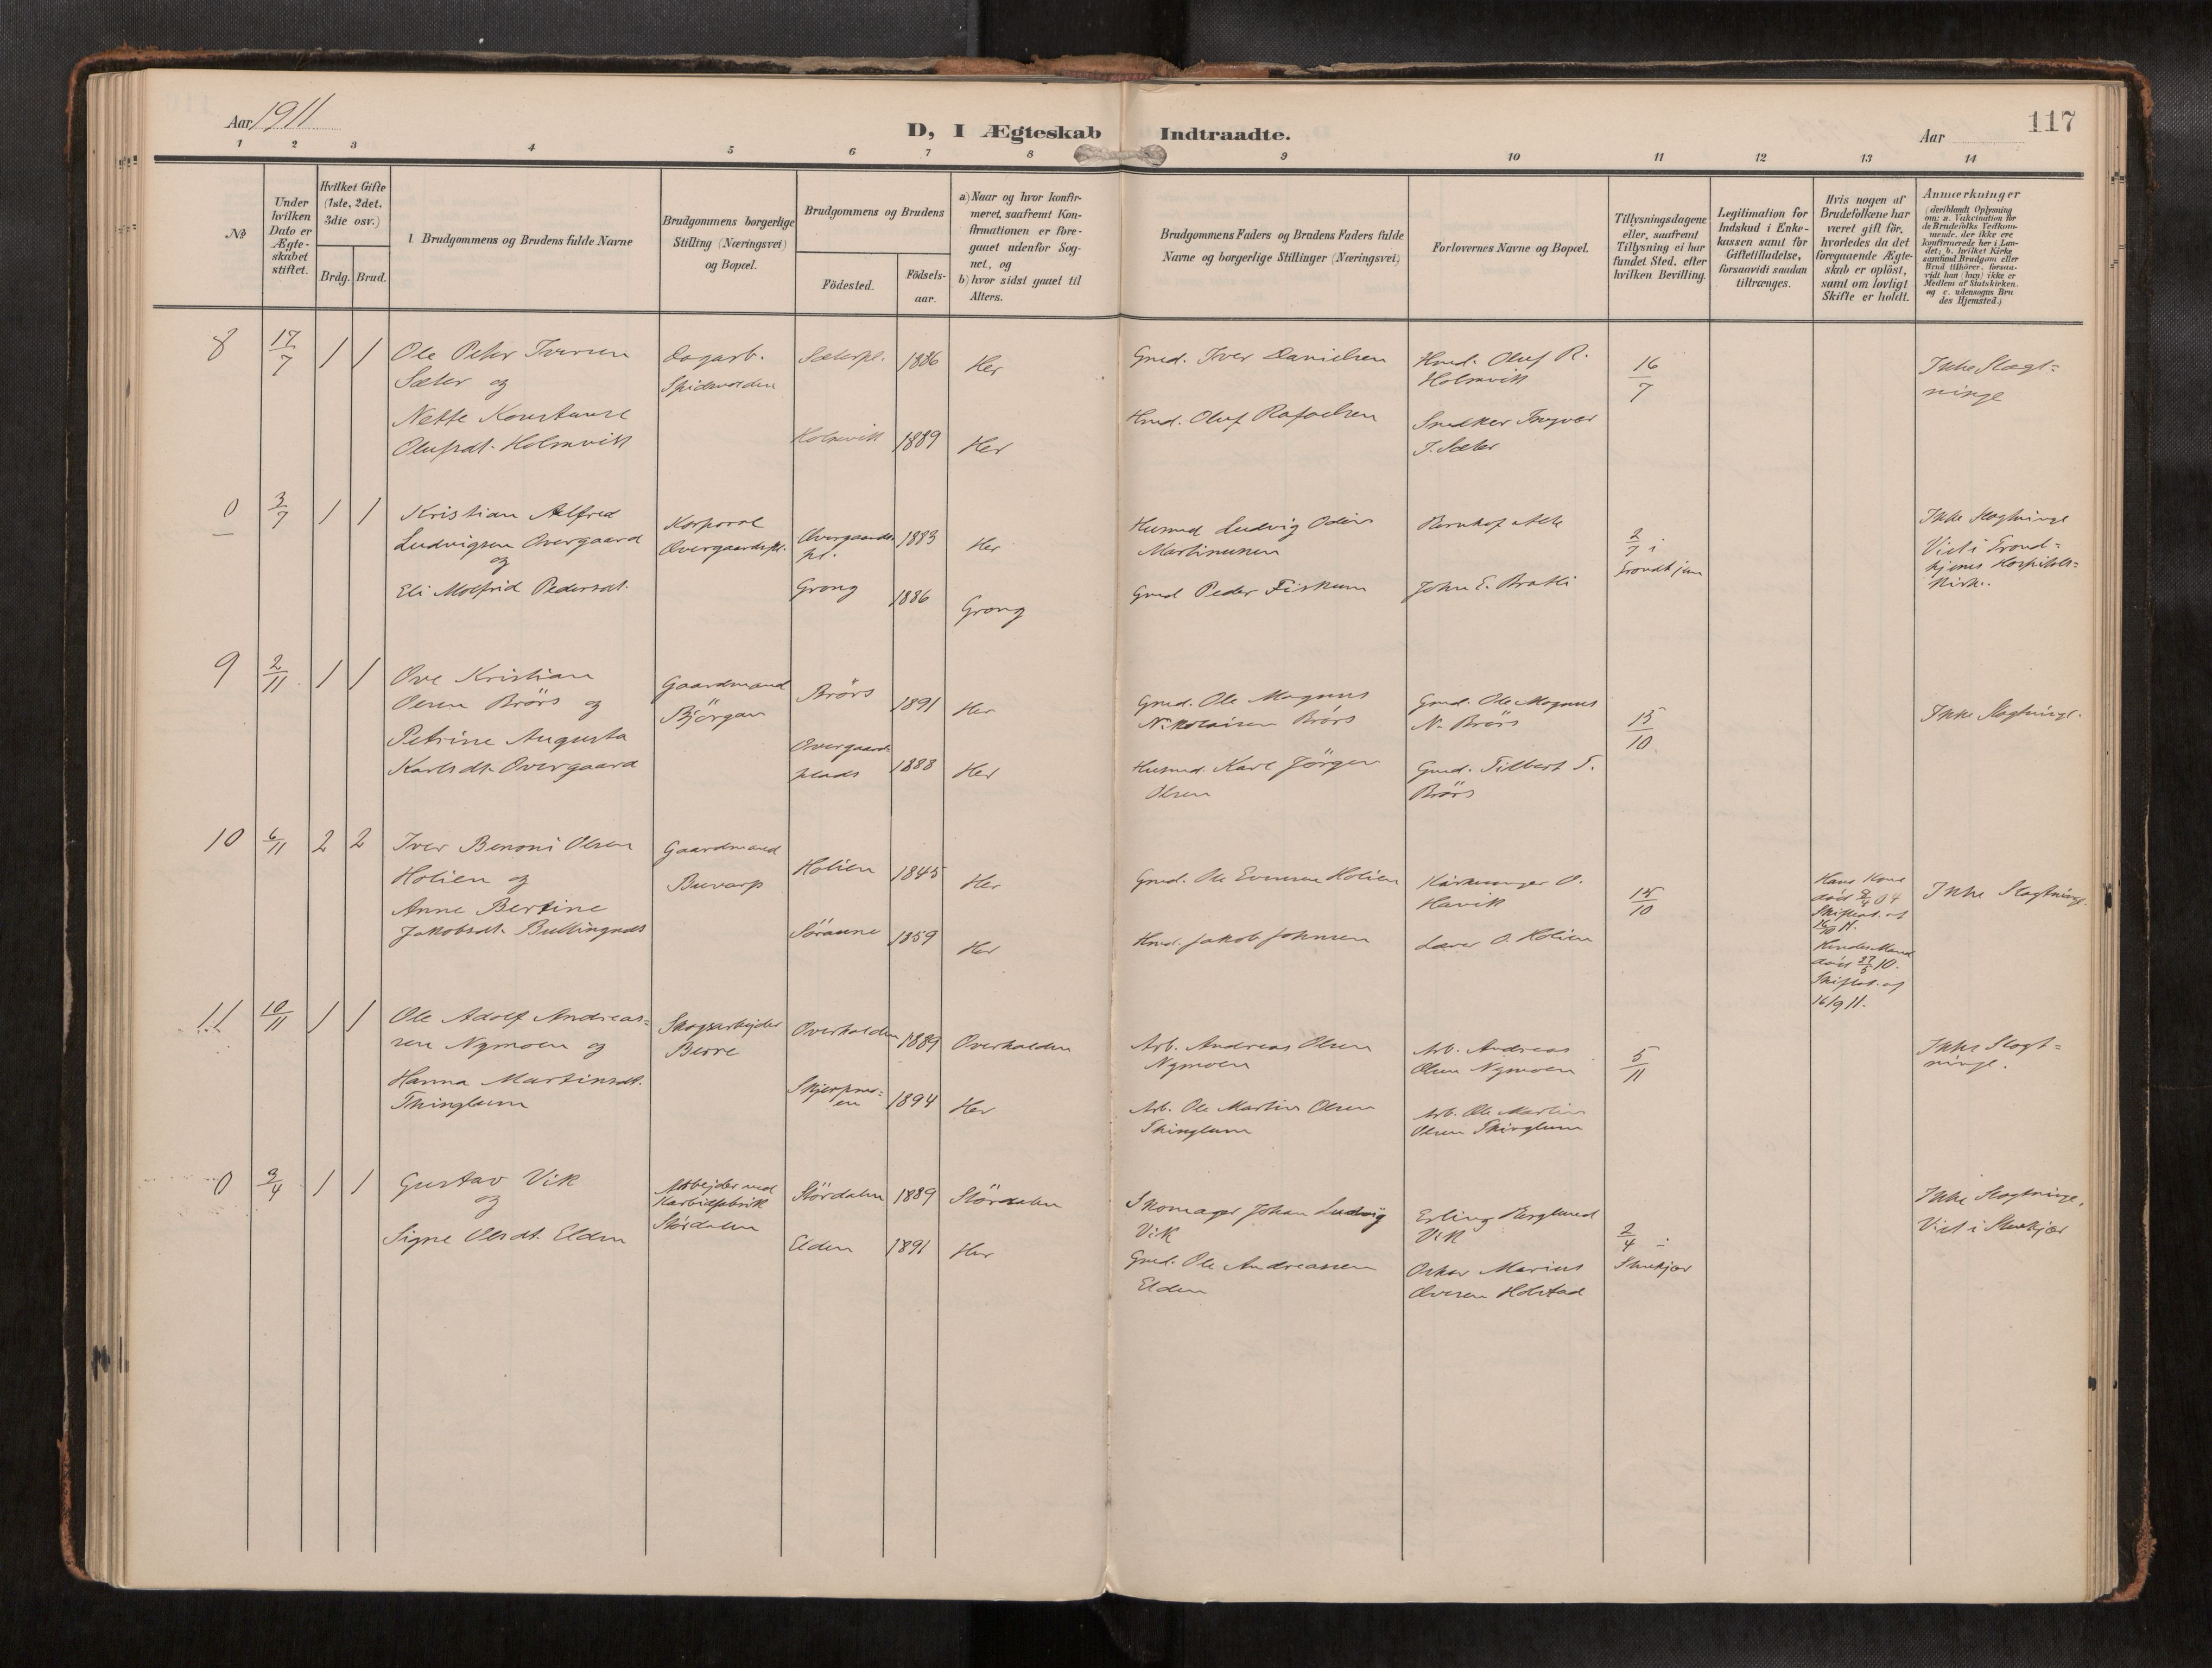 Aar 1911
D, I Ægteskab Indtraadte.
Aar
117
1 2 3 4 5 6 7 8 9 10 11 12 13 14
No
Under hvilken Dato er Ægte-skabet stiftet.
Hvilket Gifte (1ste, 2det, 3die osv.)
Brdg. Brud.
Brudgommens og Brudens fulde Navne
Brudgommens borgerlige Stilling (Næringsvei) og Bopæl.
Brudgommens og Brudens
Födested.
Födsels-aar.
a) Naar og hvor konfir-
meret, saafremt Kon-
firmationen er fore-
gaaet udenfor Sog-
net, og
b) hvor sidst gaaet til
Alters.
Brudgommens Faders og Brudens Faders fulde
Navne og borgerlige Stillinger (Næringsvei)
Forlovernes Navne og Bopæl.
Tillysningsdagene
eller, saafremt
Tillysning ei har
fundet Sted, efter
hvilken Bevilling.
Legitimation for
Indskud i Enke-
kassen samt for
Giftetilladelse,
forsaavidt saadan
tiltrænges.
Hvis nogen af
Brudefolkene har
været gift för,
hvorledes da det
foregaaende Ægte-
skab er oplöst,
samt om lovligt
Skifte er holdt.
Anmærkninger
(deriblandt Oplysning
om: a. Vakcination for
de Brudefolks Vedkom-
mende, der ikke ere
konfirmerede her i Lan-
det; b. hvilket Kirke
samfund Brudgom eller
Brud tilhörer, forsaa-
vidt han (hun) ikke er
Medlem af Statskirken,
og c. udensogns Bru
des Hjemsted.)
8 17/7 1 1 Ole Peter Iversen Dagarb. Sæterpl. 1886 Her Gmd. Iver Danielsen Hmd. Oluf R. 16/7 Ikke Slægt=
Sæter og Holmvik ninge
Nette Konstanse Holmvik 1889 Her Hmd. Oluf Rafaelsen Snedker Ingvar
Olufsdt. Holmvik J. Sæter
0 3/7 1 1 Kristian Alfred Korporal Overgaards 1883 Her Husmd Ludvig Odin 2/7 i Ikke Slægtninge
Ludvigsen Overgaard Overgaardspl. pl. Martinussen Trondhjem Viet i Trond=
og hjems Hospitals=
Eli Molfrid Pedersdt. Grong 1886 Grong Gmd Peder Fiskum John E. Bratli Kirk.
9 2/11 1 1 Ove Kristian Gaardmand Brörs 1891 Her Gmd. Ole Magnus Gmd. Ole Magnus 15/10 Ikke Slægtninge.
Olsen Brörs og Björgan Nikolaisen Brörs N. Brörs
Petrine Augusta Overgaards
Karlsdt. Overgaard plads 1888 Her Husmd. Karl Jörgen Gmd. Tilbert T.
Olsen Brörs
10 6/11 2 2 Iver Benoni Olsen Gaardmand Holien 1845 Her Gmd. Ole Evensen Holien Kirkesanger O. 15/10 Hans Kone Ikke Slægtninge.
Holien og Buvarp Havik död 04
Anne Bertine Skifteat. af
Jakobsdt. Bullingnæs 1859 Her Hmd. Jakob Johnsen Lærer O. Holien Hendes Mand
död 27/5 10.
Skifteat. af
16/9 11.
11 10/11 1 1 Ole Adolf Andreas= Skogsarbejder Overhalden 1889 Overhalden Arb. Andreas Olsen Arb. Andreas 5/11 Ikke Slægt=
sen Nymoen og Berre Nymoen Olsen Nymoen ninge.
Hanna Martinsdt. en 1894 Her Arb. Ole Martin Olsen Arb. Ole Martin
Thinglum Thinglum Olsen Thinglum
0 3/4 1 1 Gustav Vik Arbejder ved Stördalen 1889 Stördalen Skomager Johan Ludvig Erling Berglund 2/4 i Ikke Slægtninge.
og Karbidfabrik Vik Vik Stenkjær Viet i Stenkjær
Signe Olsdt. Elden Stördalen Elden 1891 Her Gmd. Ole Andreassen Oskar Marius
Elden Ovesen Holstad